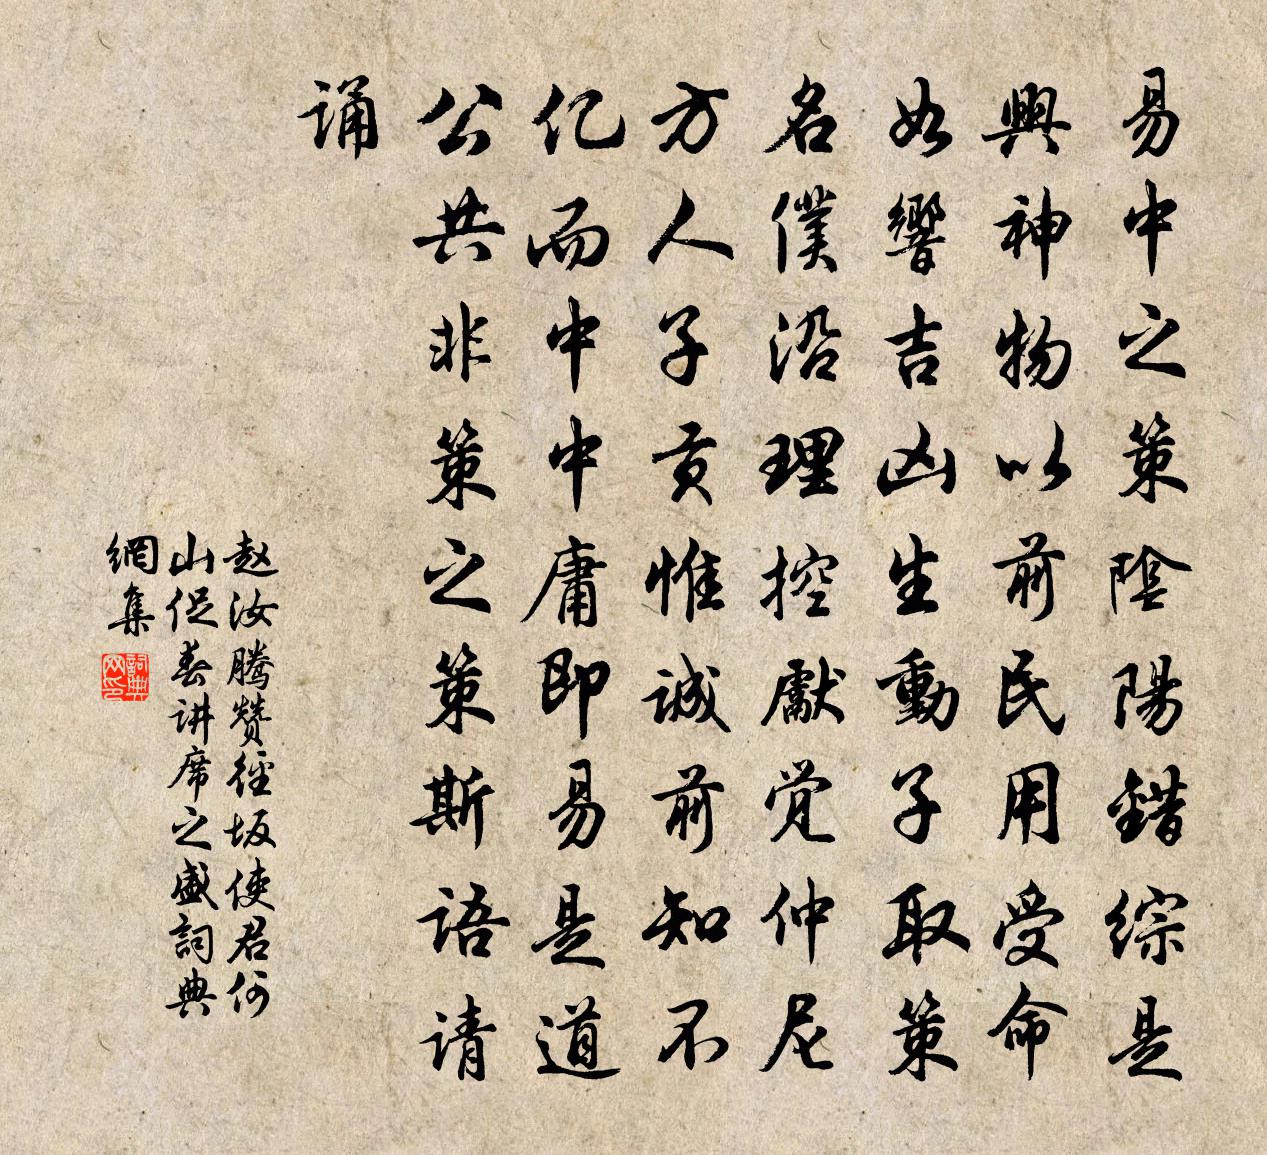 易中之策陰陽錯綜是
興神物以前民用受命
如響吉凶生動子取策
名僕沿理控獻觉仲尼
方人子贡惟诚前知不
亿而中中庸即易是道
公共非策之策斯语请
诵
赵汝腾赞径坂使君何
山促春讲席之盛詞典
網集
詞典网印